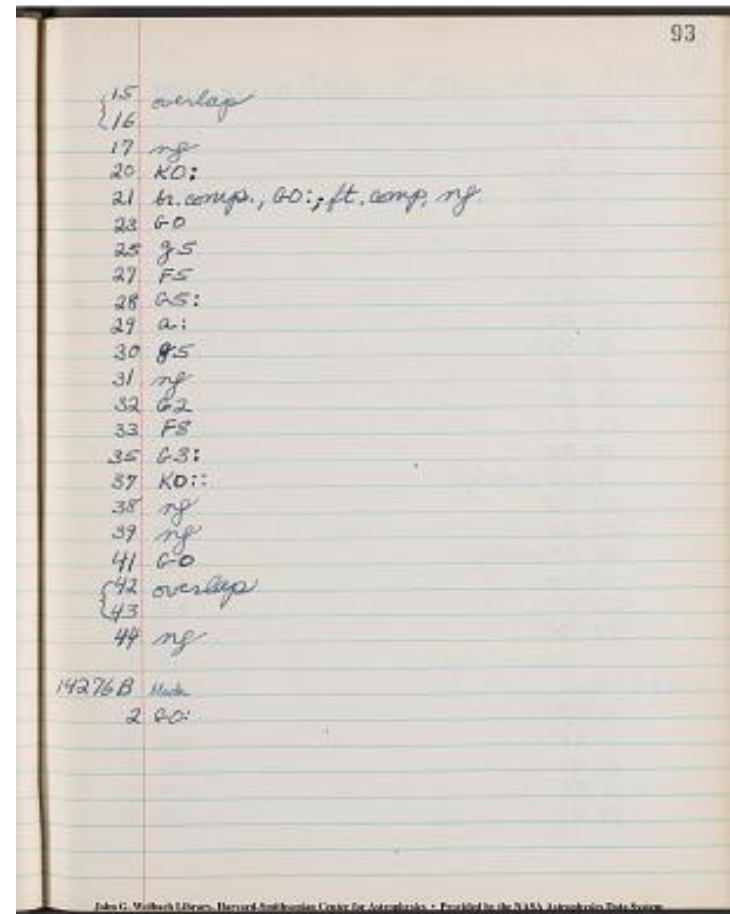 93
{15 overlap
{16
17 ng
20 K0:
21 br. comp., G0:; ft. comp, ng.
23 G0
25 g5
27 F5
28 G5:
29 a:
30 g5
31 ng
32 G2
33 F8
35 G3:
37 K0::
38 ng
39 ng
41 G0
{42 overlap
{43
44 ng
14276B
2 G0:
John G. Wolbach Library, Harvard-Smithsonian Center for Astrophysics • Provided by the NASA Astrophysics Data System